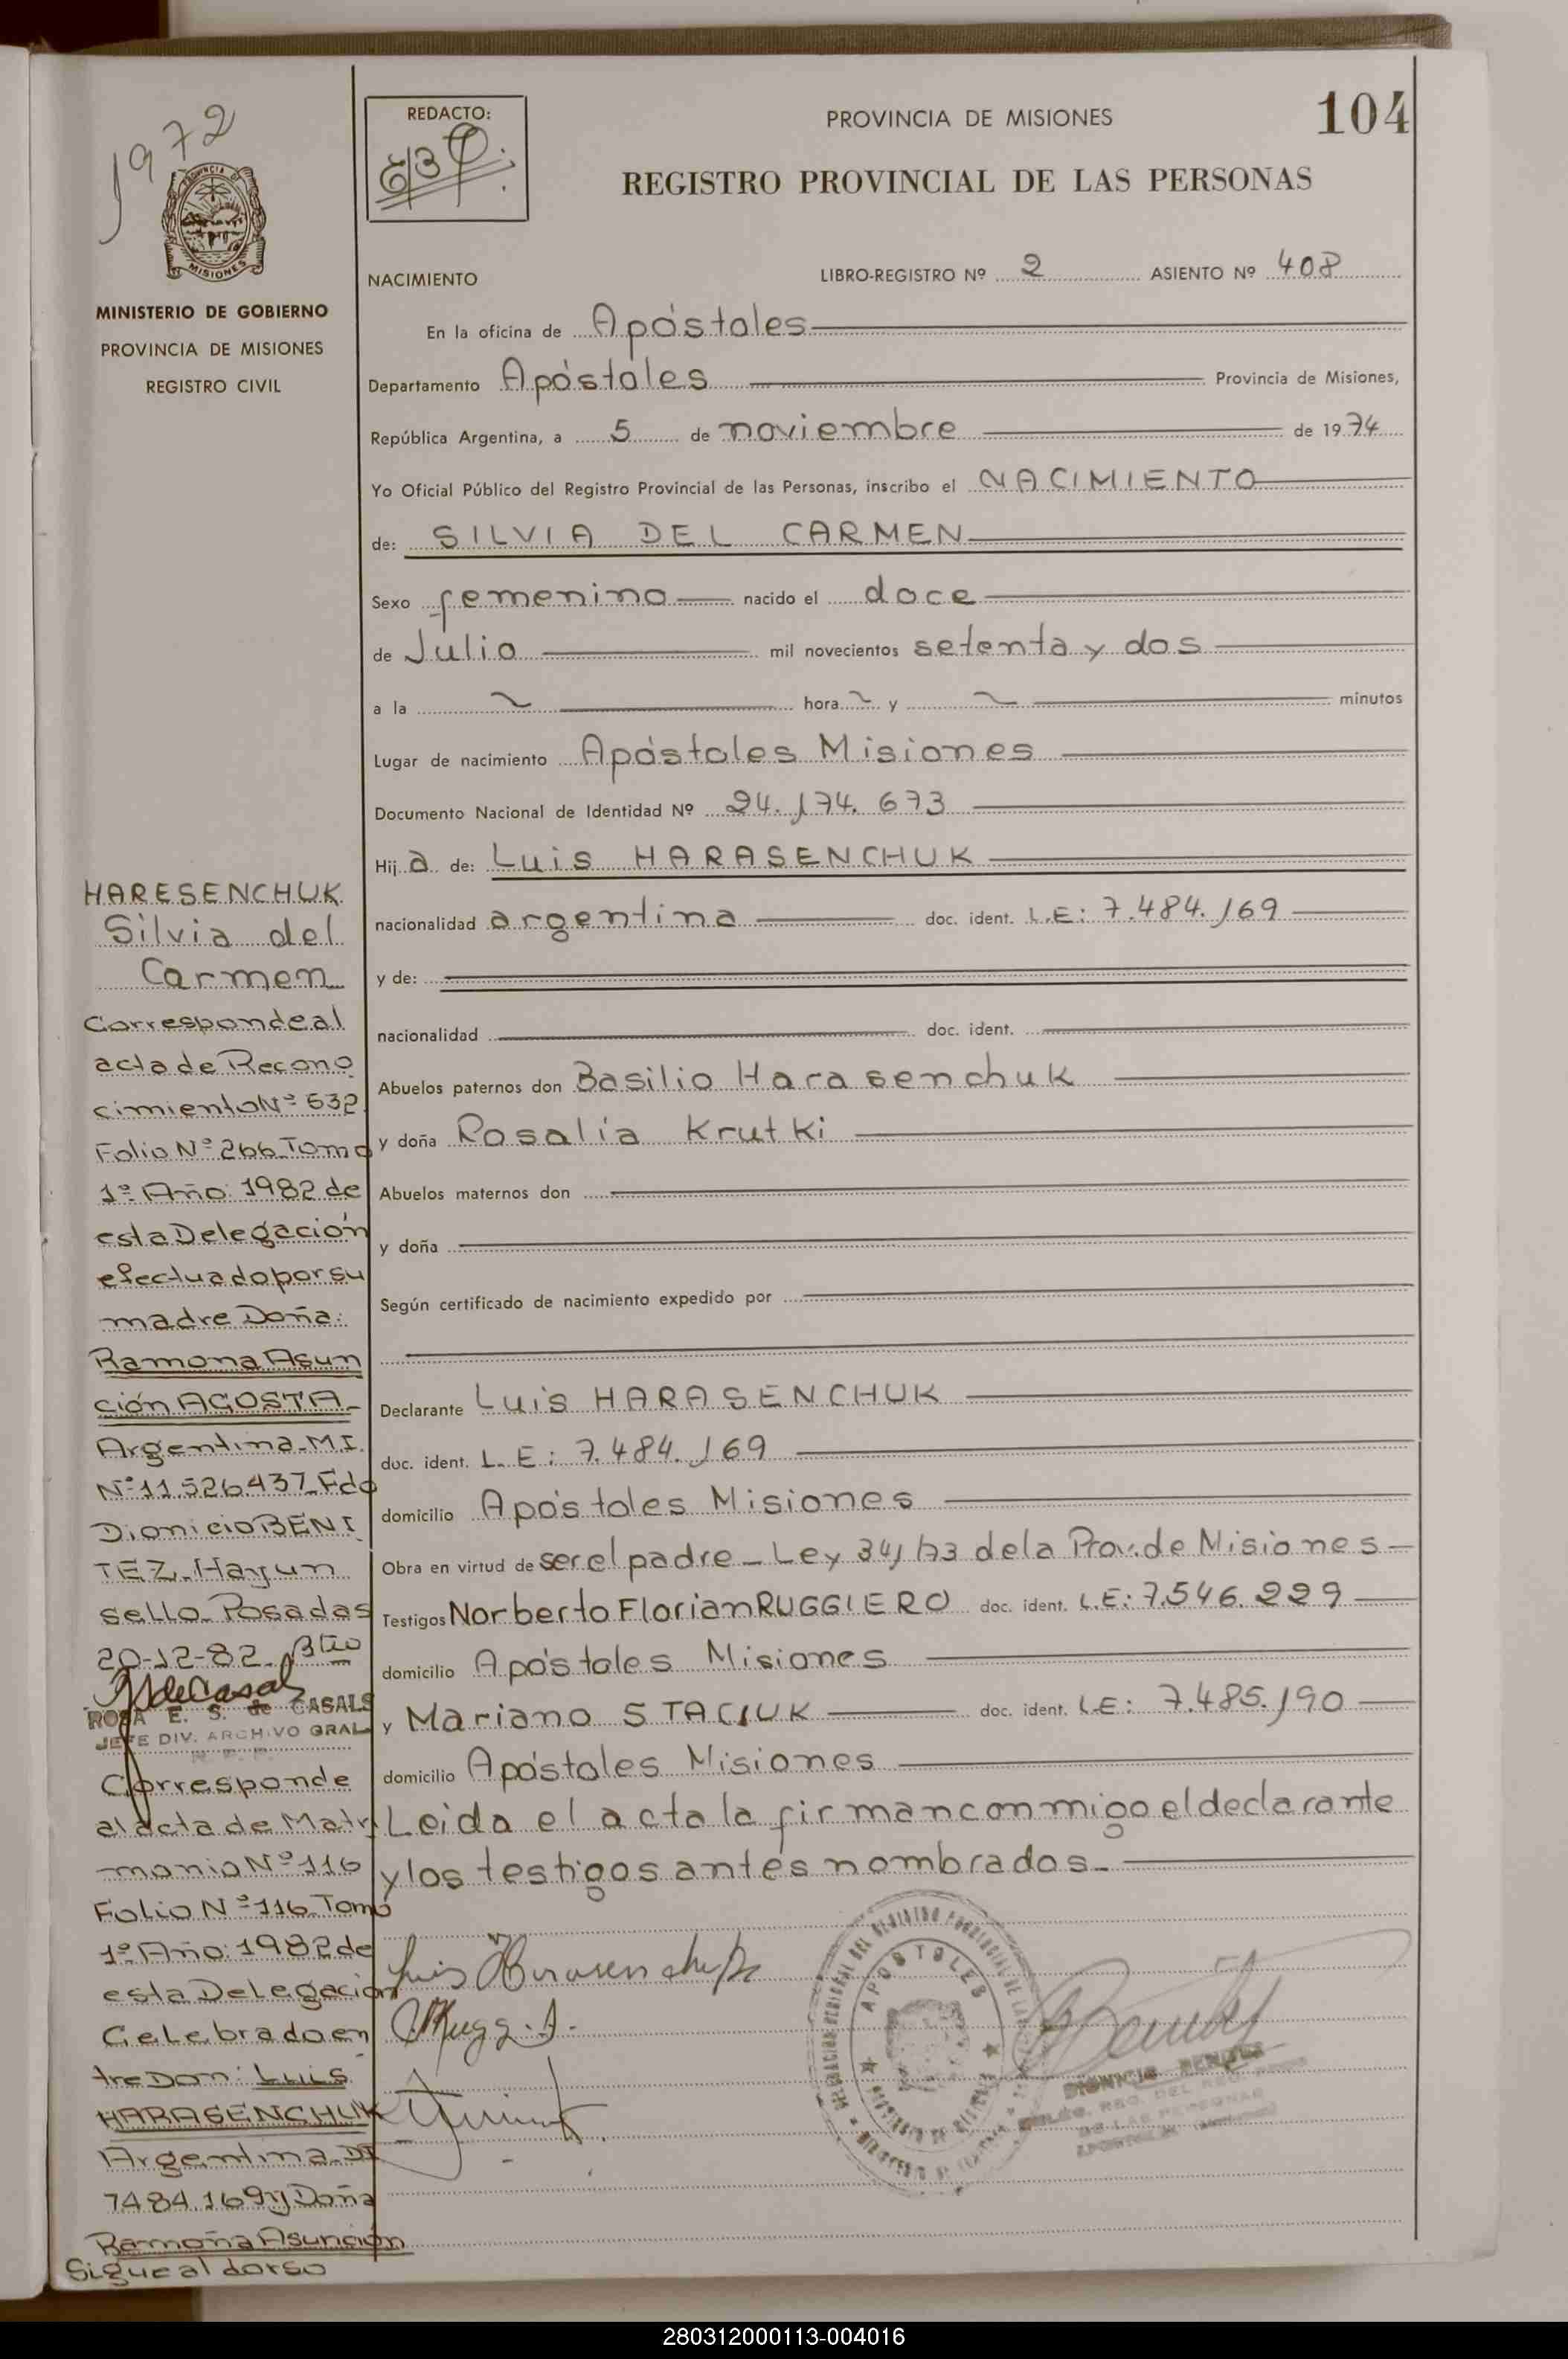 1972
PROVINCIA DE
MISIONES
MINISTERIO DE GOBIERNO
PROVINCIA DE MISIONES
REGISTRO CIVIL
REDACTO:
PROVINCIA DE MISIONES
104
REGISTRO PROVINCIAL DE LAS PERSONAS
NACIMIENTO
LIBRO-REGISTRO Nº 2 ASIENTO Nº 408
En la oficina de Apóstoles
Departamento Apóstoles Provincia de Misiones,
República Argentina, a 5 de noviembre de 1974
Yo Oficial Público del Registro Provincial de las Personas, inscribo el NACIMIENTO
de: SILVIA DEL CARMEN
Sexo femenino nacido el doce
de Julio mil novecientos setenta y dos
a la hora y minutos
Lugar de nacimiento Apóstoles Misiones
Documento Nacional de Identidad Nº 24.174.673
Hij a de: Luis HARASENCHUK
nacionalidad argentina doc. ident. L.E: 7.484.169
y de:
nacionalidad doc. ident.
Abuelos paternos don Basilio Harasenchuk
y doña Rosalía Krutki
Abuelos maternos don
y doña
Según certificado de nacimiento expedido por
Declarante Luis HARASENCHUK
doc. ident. L.E: 7.484.169
domicilio Apóstoles Misiones
Obra en virtud de ser el padre - Ley 341/73 de la Prov. de Misiones -
Testigos Norberto Florian RUGGIERO doc. ident. L.E: 7.546.229
domicilio Apóstoles Misiones
y Mariano STACIUK doc. ident. L.E: 7.485.190
domicilio Apóstoles Misiones
Leida el acta la firman conmigo el declarante
y los testigos antes nombrados.-
Luis Harasenchuk
APOSTOLES
HARESENCHUK
Silvia del
Carmen
Corresponde al
acta de Recono
cimiento Nº 532
Folio Nº 266 Tomo
1º Año: 1982 de
esta Delegación
efectuado por su
madre Doña:
Ramona Asun
ción ACOSTA-
Argentina M.I.
Nº 11.526.437 Fdo
Dionicio BENI
TEZ. Hay un
sello. Posadas
20-12-82.
ROSA E. S. de CASALS
JEFE DIV. ARCHIVO GRAL
R. P. P.
Corresponde
al acta de Matri
monio Nº 116
Folio Nº 116 Tomo
1º Año: 1982 de
esta Delegación
Celebrado en
tre Don: Luis
HARASENCHUK
Argentina DI
7484.169 y Doña
Ramona Asunción
Sigue al dorso
280312000113-004016